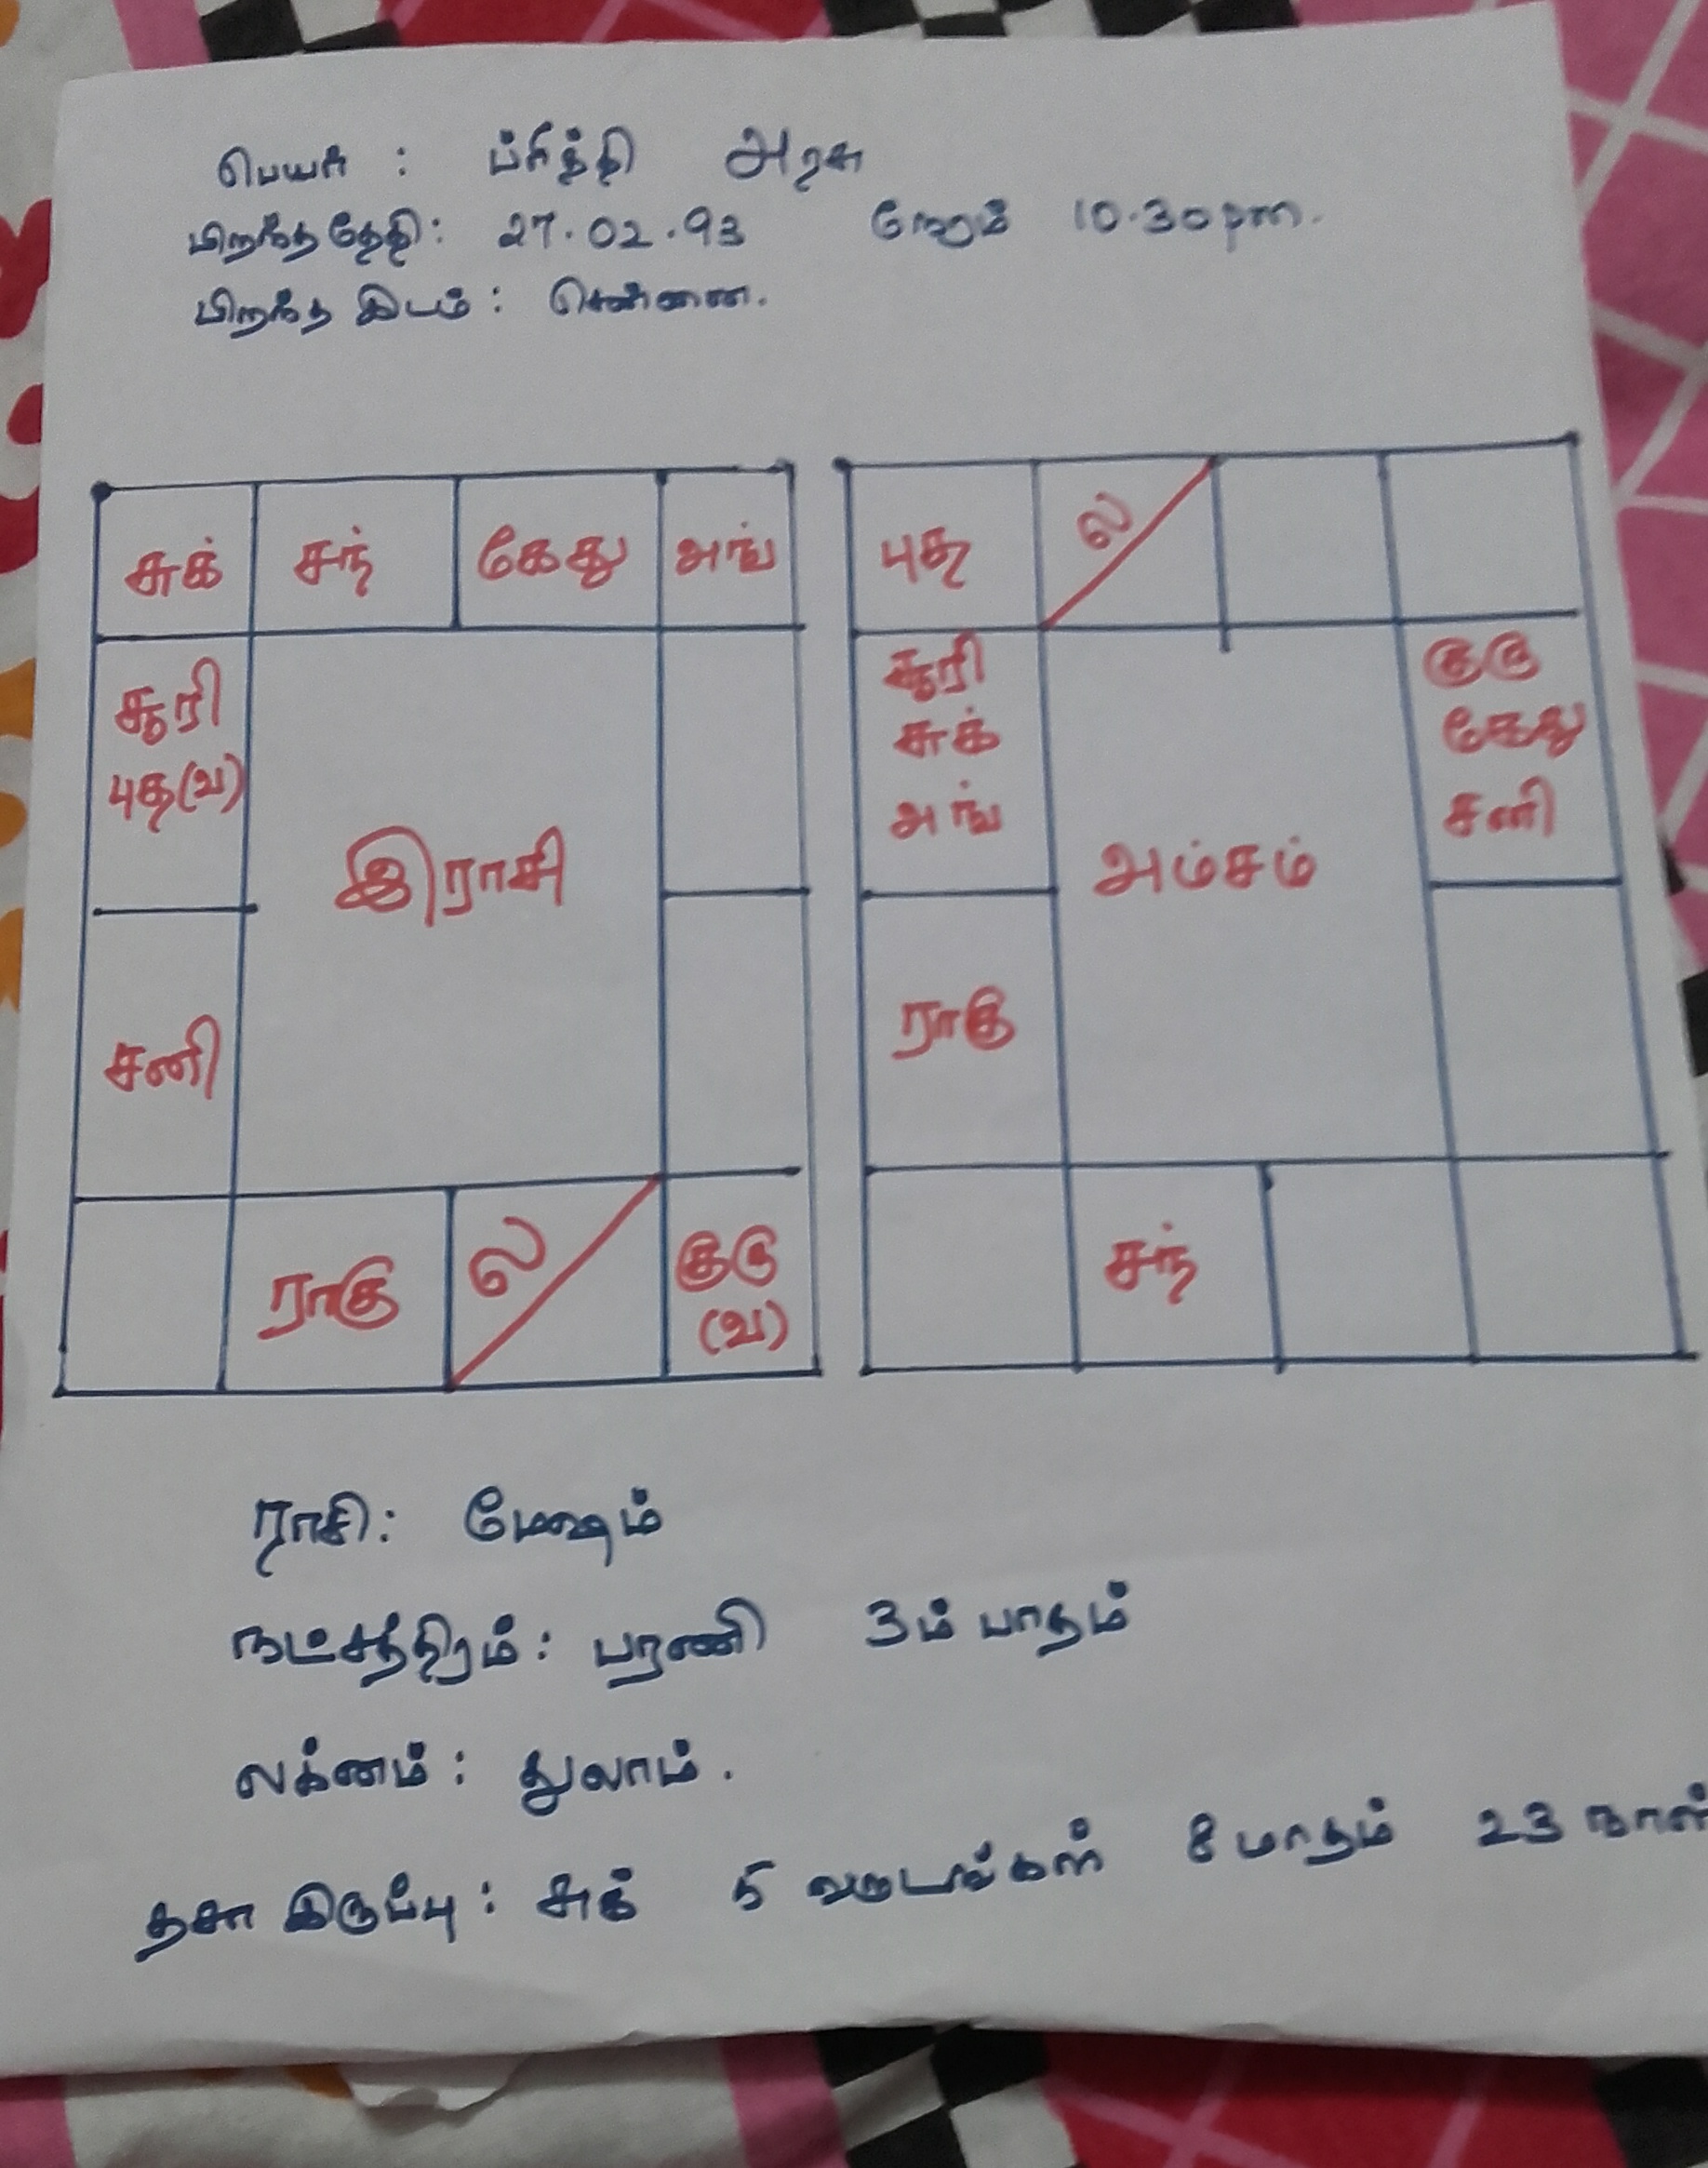 பெயர் : ப்ரித்தி அரசு
பிறந்த தேதி: 27.02.93 நேரம் 10.30pm.
பிறந்த இடம் : சென்னை.
சுக் சந் கேது அங்
சூரி
புத(வ)
இராசி
சனி
ராகு ல குரு
(வ)
புத ல
சூரி
சுக்
அங்
குரு
கேது
சனி
அம்சம்
ராகு
சந்
ராசி: மேஷம்
நட்சத்திரம்: பரணி 3ம் பாதம்
லக்னம் : துலாம்.
தசா இருப்பு : சுக் 5 வருடங்கள் 8 மாதம் 23 நாள்